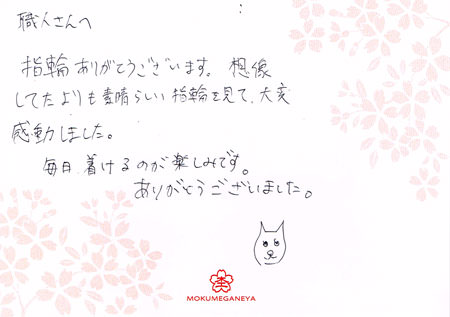 職人さんへ
指輪ありがとうございます。想像
してたよりも素晴らしい指輪を見て、大変
感動しました。
毎日着けるのが楽しみです。
ありがとうございました。
MOKUMEGANEYA